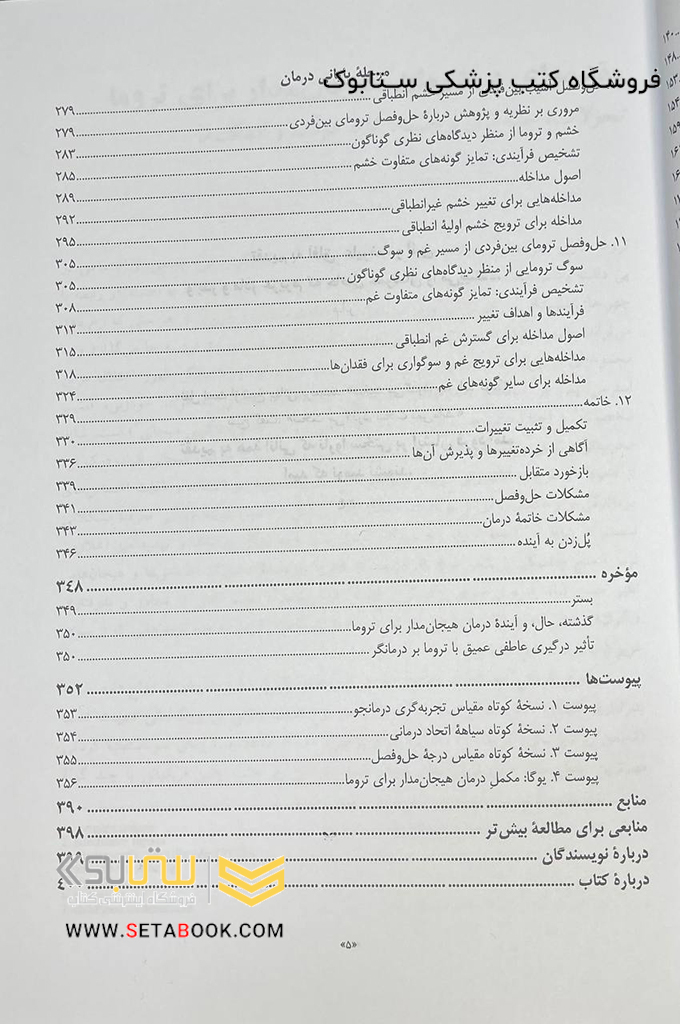 مرحلهٔ پایانی درمان
فروشگاه کتب پزشکی ستابوک
حل‌وفصل آسیب بین‌فردی از مسیر خشم انطباقی ۲۷۹
مروری بر نظریه و پژوهش دربارهٔ حل‌وفصل ترومای بین‌فردی ۲۷۹
خشم و تروما از منظر دیدگاه‌های نظری گوناگون ۲۸۳
تشخیص فرآیندی: تمایز گونه‌های متفاوت خشم ۲۸۵
اصول مداخله ۲۸۹
مداخله‌هایی برای تغییر خشم غیرانطباقی ۲۹۲
مداخله برای ترویج خشم اولیهٔ انطباقی ۲۹۵
۱۱. حل‌وفصل ترومای بین‌فردی از مسیر غم و سوگ ۳۰۵
سوگ ترومایی از منظر دیدگاه‌های نظری گوناگون ۳۰۵
تشخیص فرآیندی: تمایز گونه‌های متفاوت غم ۳۰۸
فرآیندها و اهداف تغییر ۳۱۳
اصول مداخله برای گسترش غم انطباقی ۳۱۵
مداخله‌هایی برای ترویج غم و سوگواری برای فقدان‌ها ۳۱۸
مداخله برای سایر گونه‌های غم ۳۲۴
۱۲. خاتمه ۳۲۹
تکمیل و تثبیت تغییرات ۳۳۰
آگاهی از خرده‌تغییرها و پذیرش آن‌ها ۳۳۶
بازخورد متقابل ۳۳۹
مشکلات حل‌وفصل ۳۴۱
مشکلات خاتمهٔ درمان ۳۴۳
پُل‌زدن به آینده ۳۴۶
مؤخره ۳۴۸
بستر ۳۴۹
گذشته، حال، و آیندهٔ درمان هیجان‌مدار برای تروما ۳۵۰
تأثیر درگیری عاطفی عمیق با تروما بر درمانگر ۳۵۰
پیوست‌ها ۳۵۲
پیوست ۱. نسخهٔ کوتاه مقیاس تجربه‌گری درمانجو ۳۵۳
پیوست ۲. نسخهٔ کوتاه سیاههٔ اتحاد درمانی ۳۵۴
پیوست ۳. نسخهٔ کوتاه مقیاس درجهٔ حل‌وفصل ۳۵۵
پیوست ۴. یوگا: مکملِ درمان هیجان‌مدار برای تروما ۳۵۶
منابع ۳۹۰
منابعی برای مطالعهٔ بیش‌تر ۳۹۸
دربارهٔ نویسندگان ۳۹۹
دربارهٔ کتاب
ستابوک
فروشگاه اینترنتی کتاب
WWW.SETABOOK.COM
«۵»